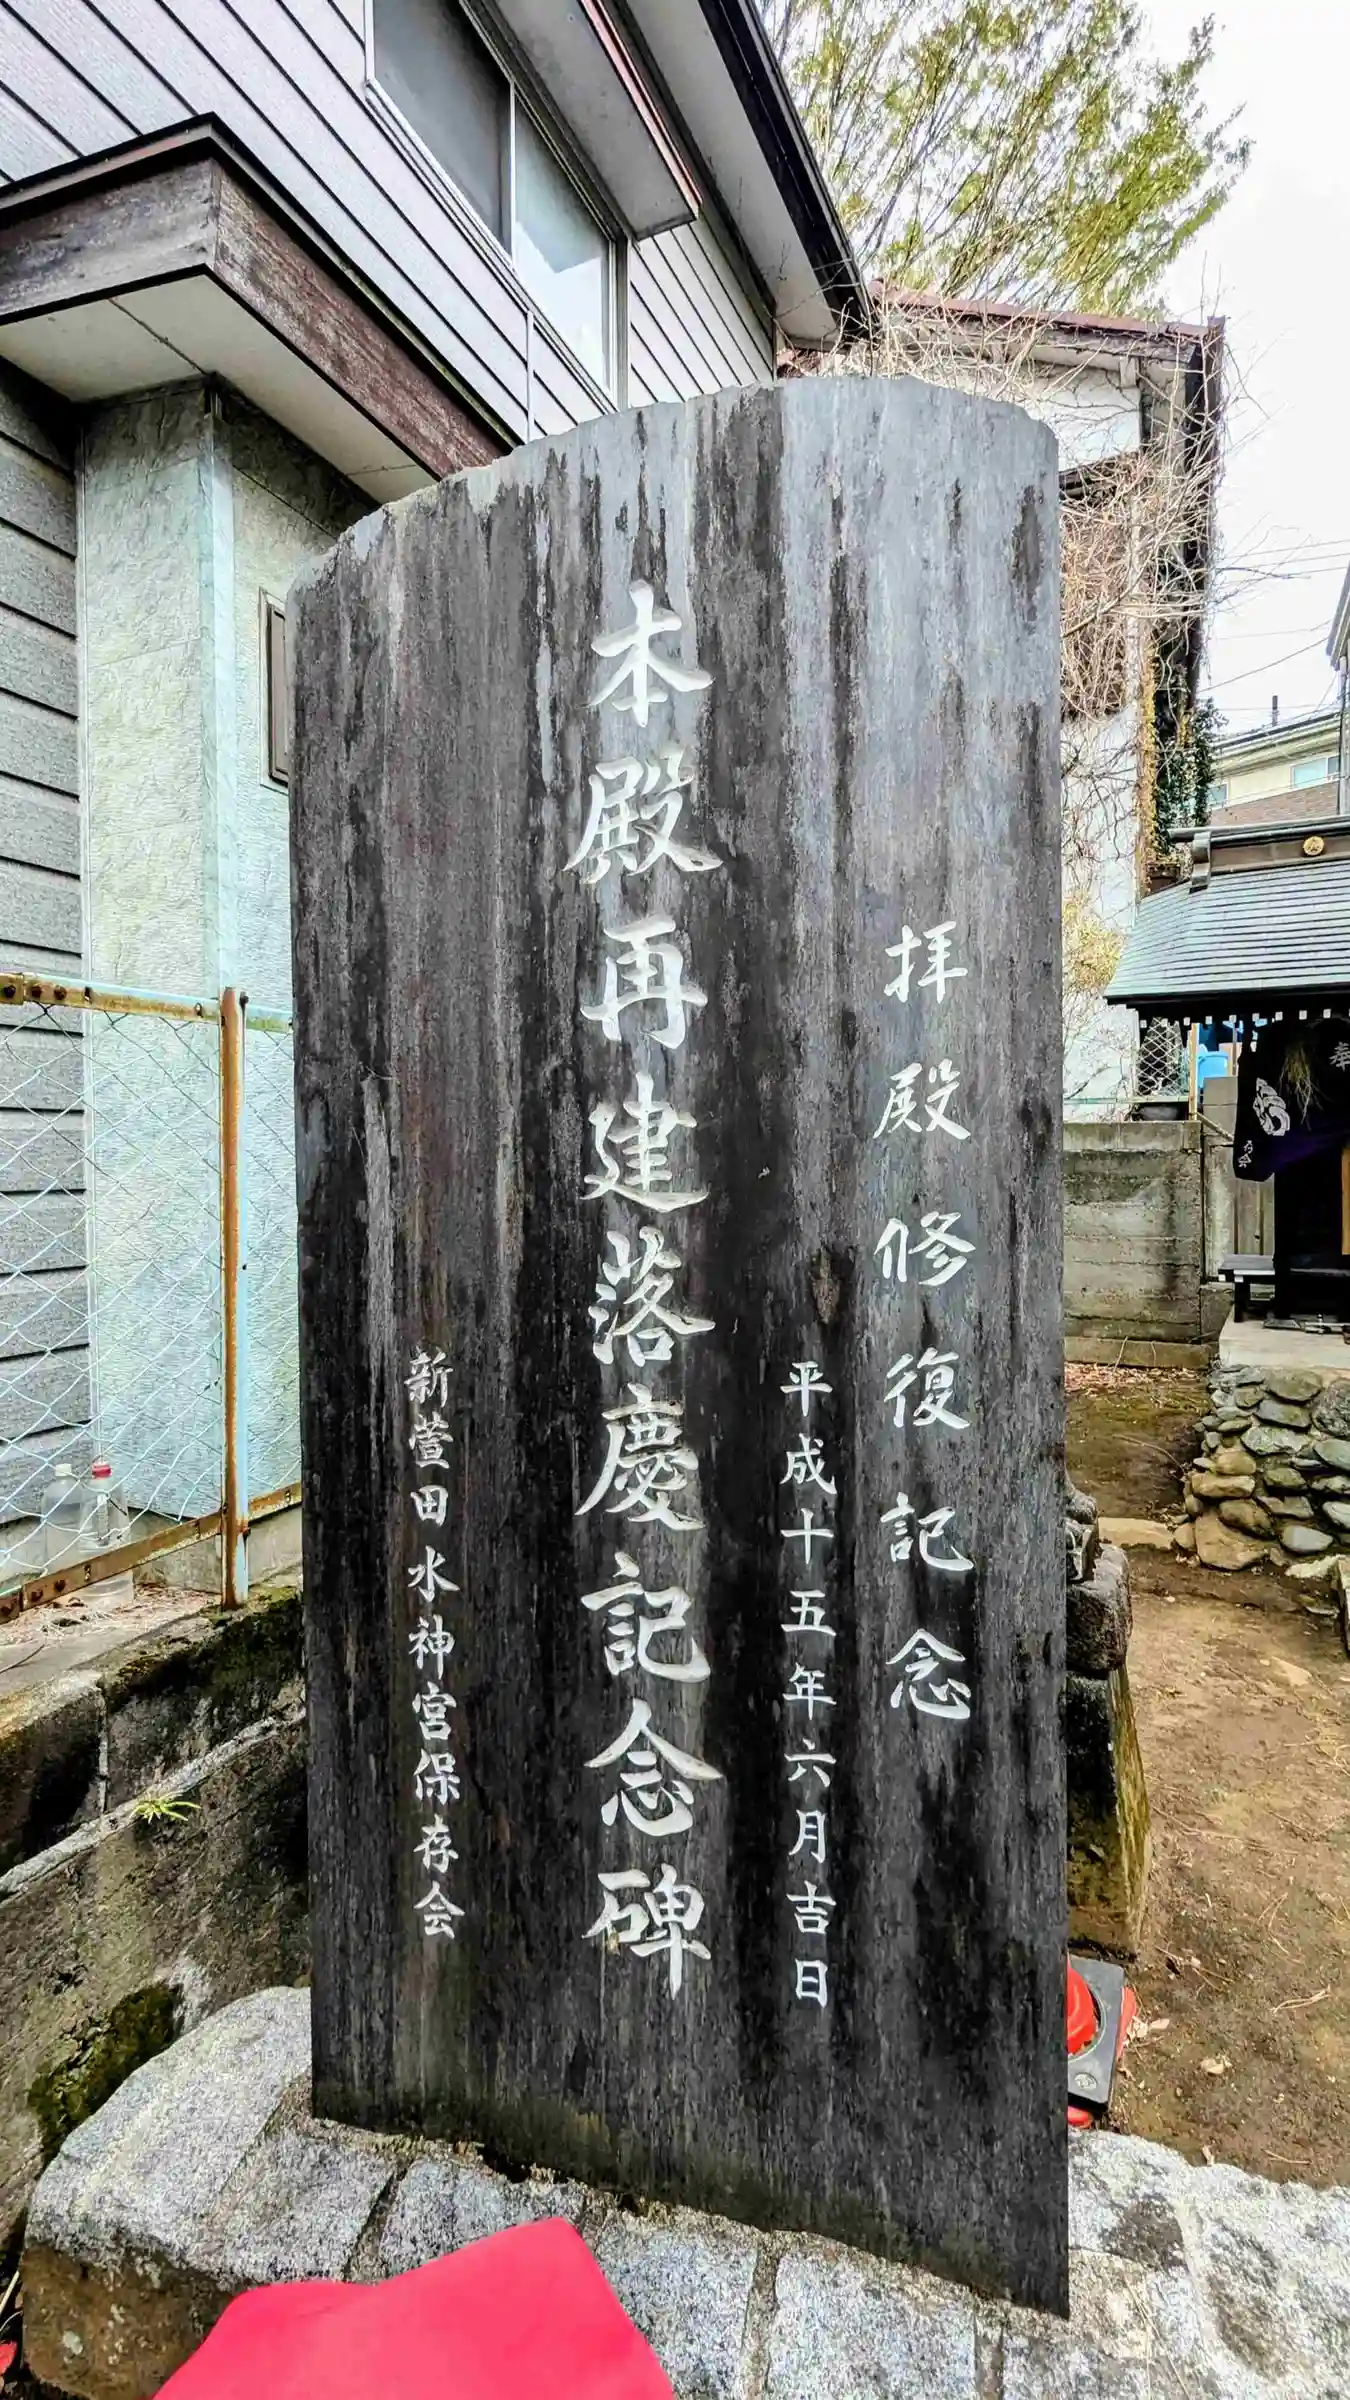 拝殿修復記念
平成十五年六月吉日
本殿再建落慶記念碑
新萱田水神宮保存会
奉